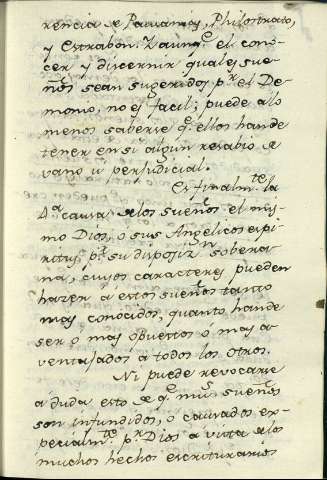 rencia de Pausanias, Philostrato,
y Estrabon. Y aunq.e el cono-
cer y discernir quales sue-
ños sean sugeridos p.r el De-
monio, no es facil; puede a lo
menos saberse q.e ellos han de
tener en si algun resabio de
vano ù perjudicial.
Es finalm.te la
4.a causa de los sueños el mis-
mo Dios, o sus Angelicos espi-
ritus p.r su disposiz.n sobera-
na, cuyos caracteres pueden
hazer à estos sueños tanto
mas conocidos, quanto han de
ser ò mas obuestos ò mas a-
ventajados à todos los otros.
Ni puede revocarse
à duda esto de q.e mu.s sueños
son infundidos, o causados es-
pecialm.te p.r Dios à vista de los
muchos hechos escriturarios